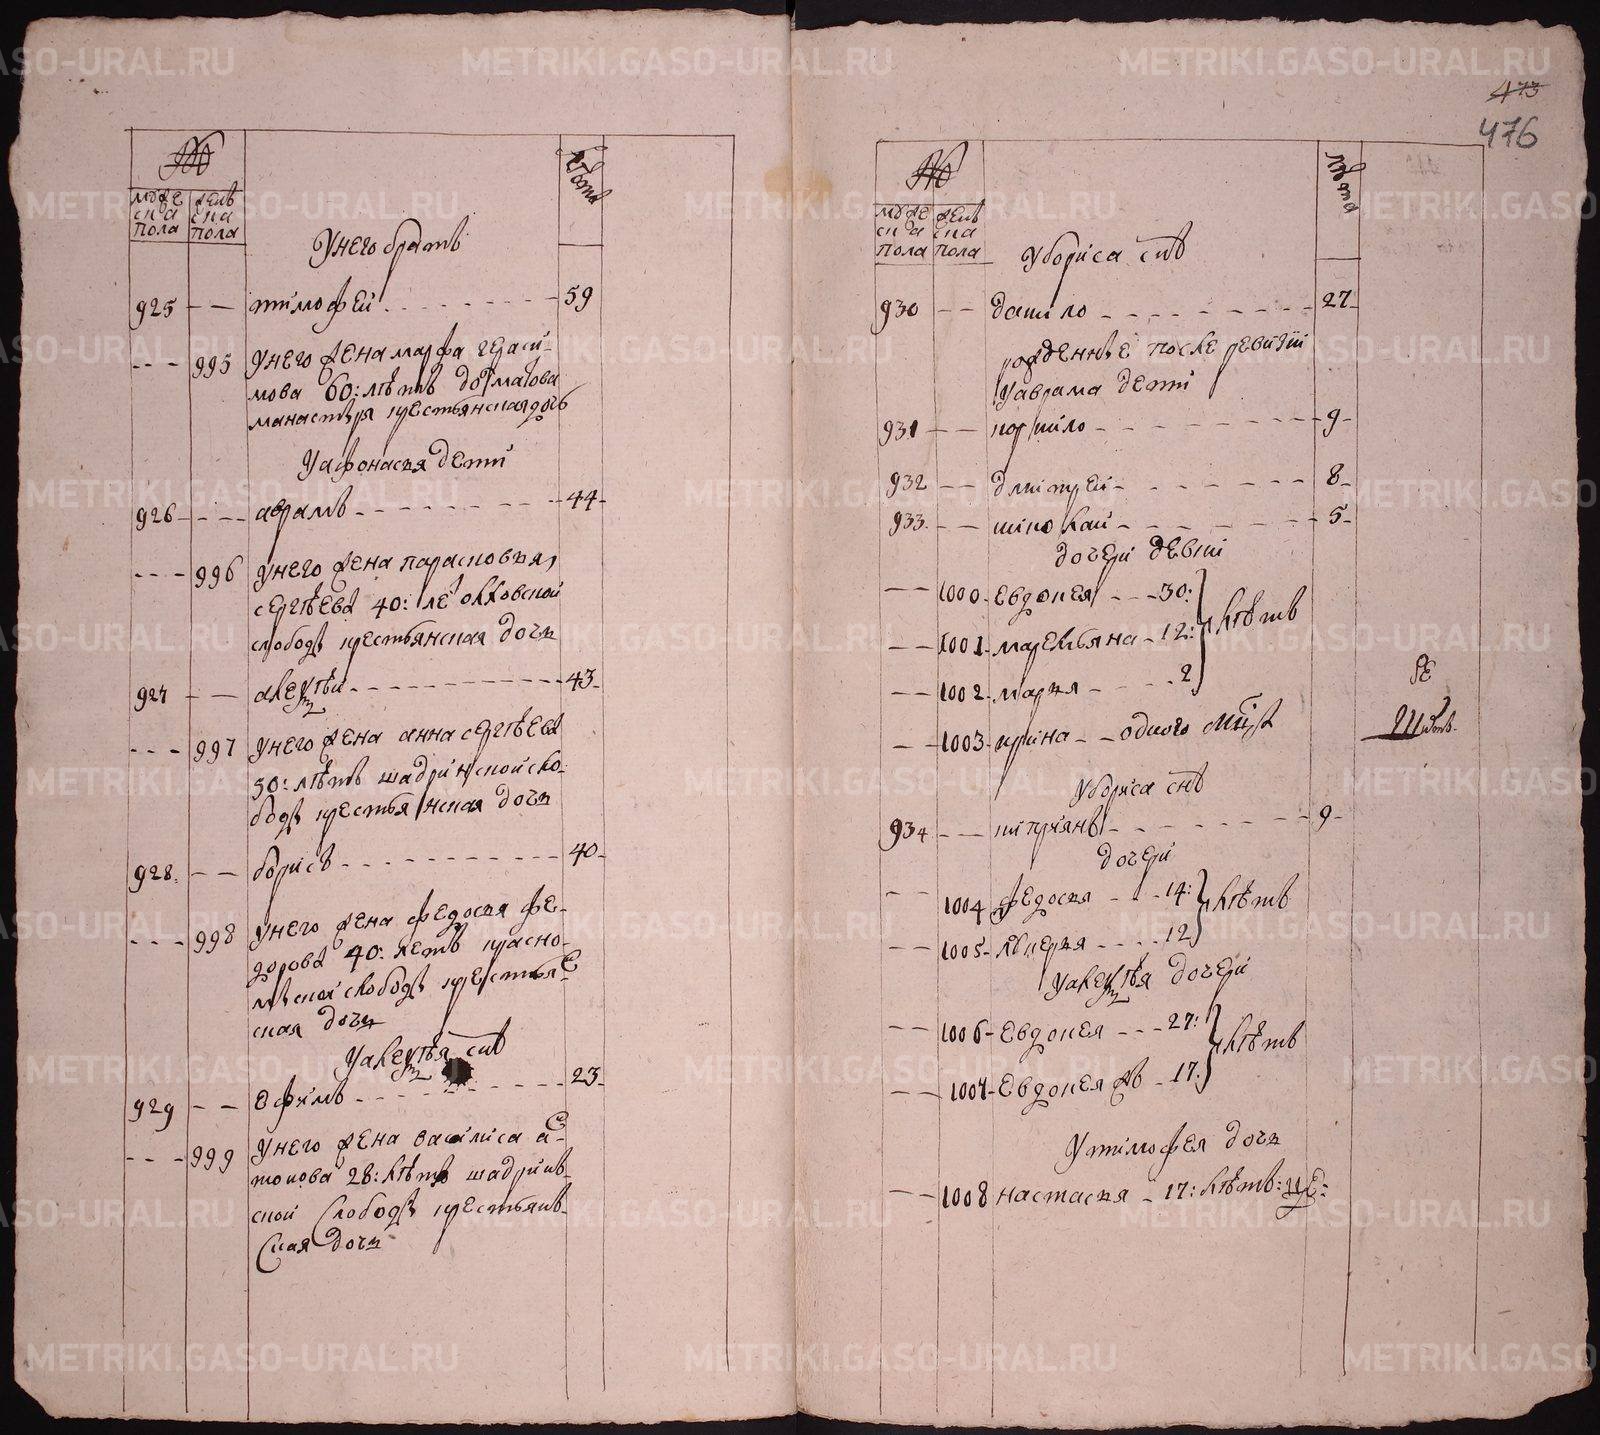 METRIKI.GASO-URAL.RU
№
муже
ска
пола
женъ
ска
пола
лѣта
У него братъ
925 — — тимофей 59
— — — 995 У него жена марфа гераси-
мова 60: лѣтъ долматова
манастыря крестьянская дочь
У афонасья дети
926 — — аврамъ 44
— — — 996 У него жена парасковья
сергѣева 40: ле олховской
слободы крестьянская дочь
927 — — 43
— — — 997 У него жена анна сергѣева
50: лѣтъ шадринской сло-
боды крестьянская дочь
928 — — борисъ 40
— — — 998 У него жена федосья фе-
дорова 40: летъ красно-
мыской слободы крестьян-
ская дочь
снъ
929 — — ефимъ 23
— — — 999 У него жена василиса ан-
тонова 28: лѣтъ шадринъ-
ской слободы крестьянъ-
ская дочь
473
476
№
муже
ска
пола
женъ
ска
пола
лѣта
У бориса снъ
930 — — данило 27
рожденные после ревизии
У аврама дети
931 — — корнило 9
932 — — дмитрей 8
933 — — николай 5
дочери девки
— — 1000 евдокея 30: лѣтъ
— — 1001 маремьяна 12:
— — 1002 марья 2
— — 1003 ирина — одного мсца
У бориса снъ
934 — — киприянъ 9
дочери
— — 1004 федосья 14: лѣтъ
— — 1005 лукерья 12
дочери
— — 1006 евдокея 27: лѣтъ
— — 1007 евдокея жъ 17:
У тимофея дочь
— — 1008 настасья 17: лѣтъ: